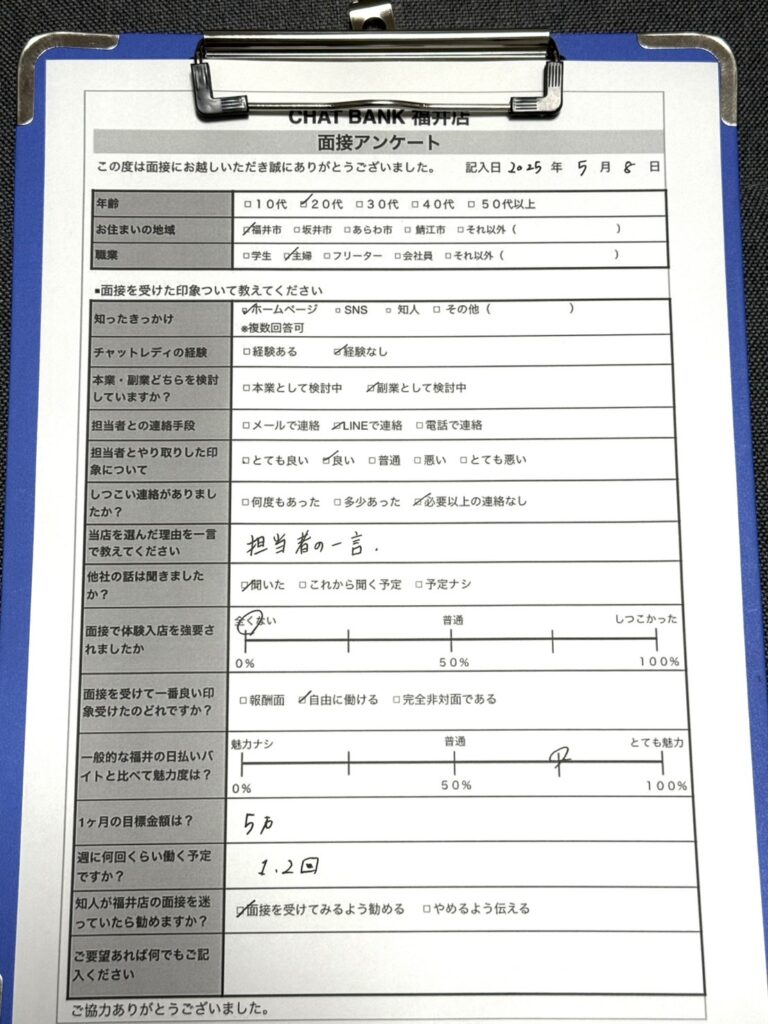 CHAT BANK 福井店
面接アンケート
この度は面接にお越しいただき誠にありがとうございました。 記入日 2025 年 5 月 8 日
年齢 □10代 ☑20代 □30代 □40代 □50代以上
お住まいの地域 ☑福井市 □坂井市 □あらわ市 □鯖江市 □それ以外（ ）
職業 □学生 ☑主婦 □フリーター □会社員 □それ以外（ ）
■面接を受けた印象ついて教えてください
知ったきっかけ ☑ホームページ □SNS □知人 □その他（ ）
※複数回答可
チャットレディの経験 □経験ある ☑経験なし
本業・副業どちらを検討
していますか？ □本業として検討中 ☑副業として検討中
担当者との連絡手段 □メールで連絡 ☑LINEで連絡 □電話で連絡
担当者とやり取りした印
象について □とても良い ☑良い □普通 □悪い □とても悪い
しつこい連絡がありまし
たか？ □何度もあった □多少あった ☑必要以上の連絡なし
当店を選んだ理由を一言
で教えてください 担当者の一言.
他社の話は聞きました
か？ ☑聞いた □これから聞く予定 □予定ナシ
面接で体験入店を強要さ
れましたか 全くない 普通 しつこかった
0% 50% 100%
面接を受けて一番良い印
象受けたのどれですか？ □報酬面 ☑自由に働ける □完全非対面である
一般的な福井の日払いバ
イトと比べて魅力度は？ 魅力ナシ 普通 とても魅力
0% 50% 100%
1ヶ月の目標金額は？ 5万
週に何回くらい働く予定
ですか？ 1.2回
知人が福井店の面接を迷
っていたら勧めますか？ ☑面接を受けてみるよう勧める □やめるよう伝える
ご要望あれば何でもご記
入ください
ご協力ありがとうございました。